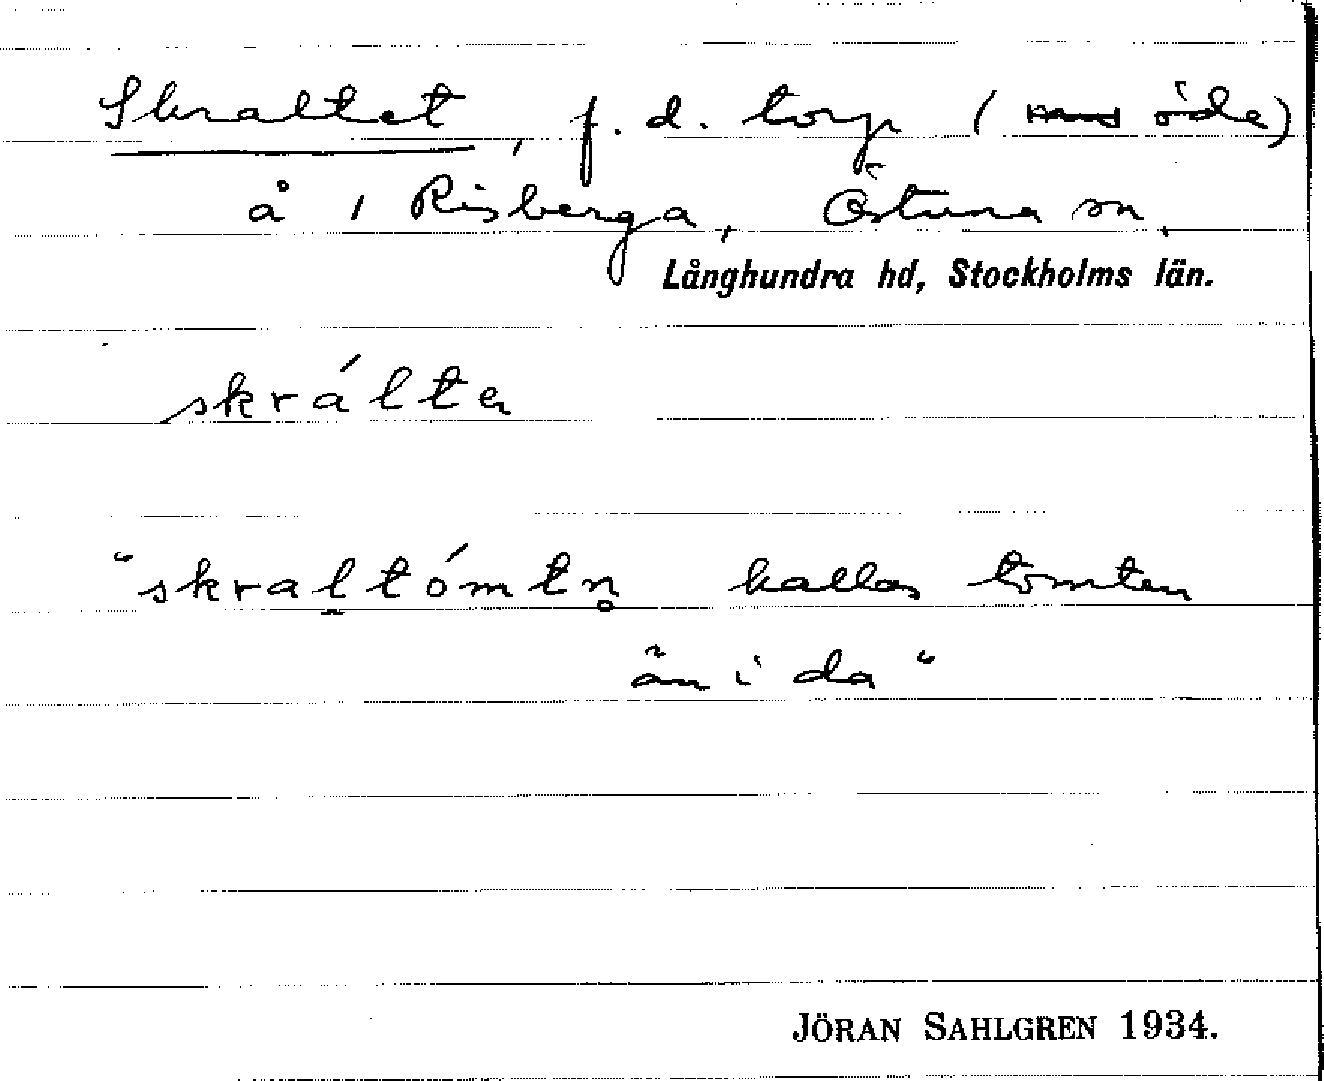 Skraltet, f. d. torp ( öde)
å 1 Risberga, Östuna sn,
Långhundra hd, Stockholms län.
skrálte
"skraltómtn̥ kallas tomten
än i da"
JÖRAN SAHLGREN 1934.